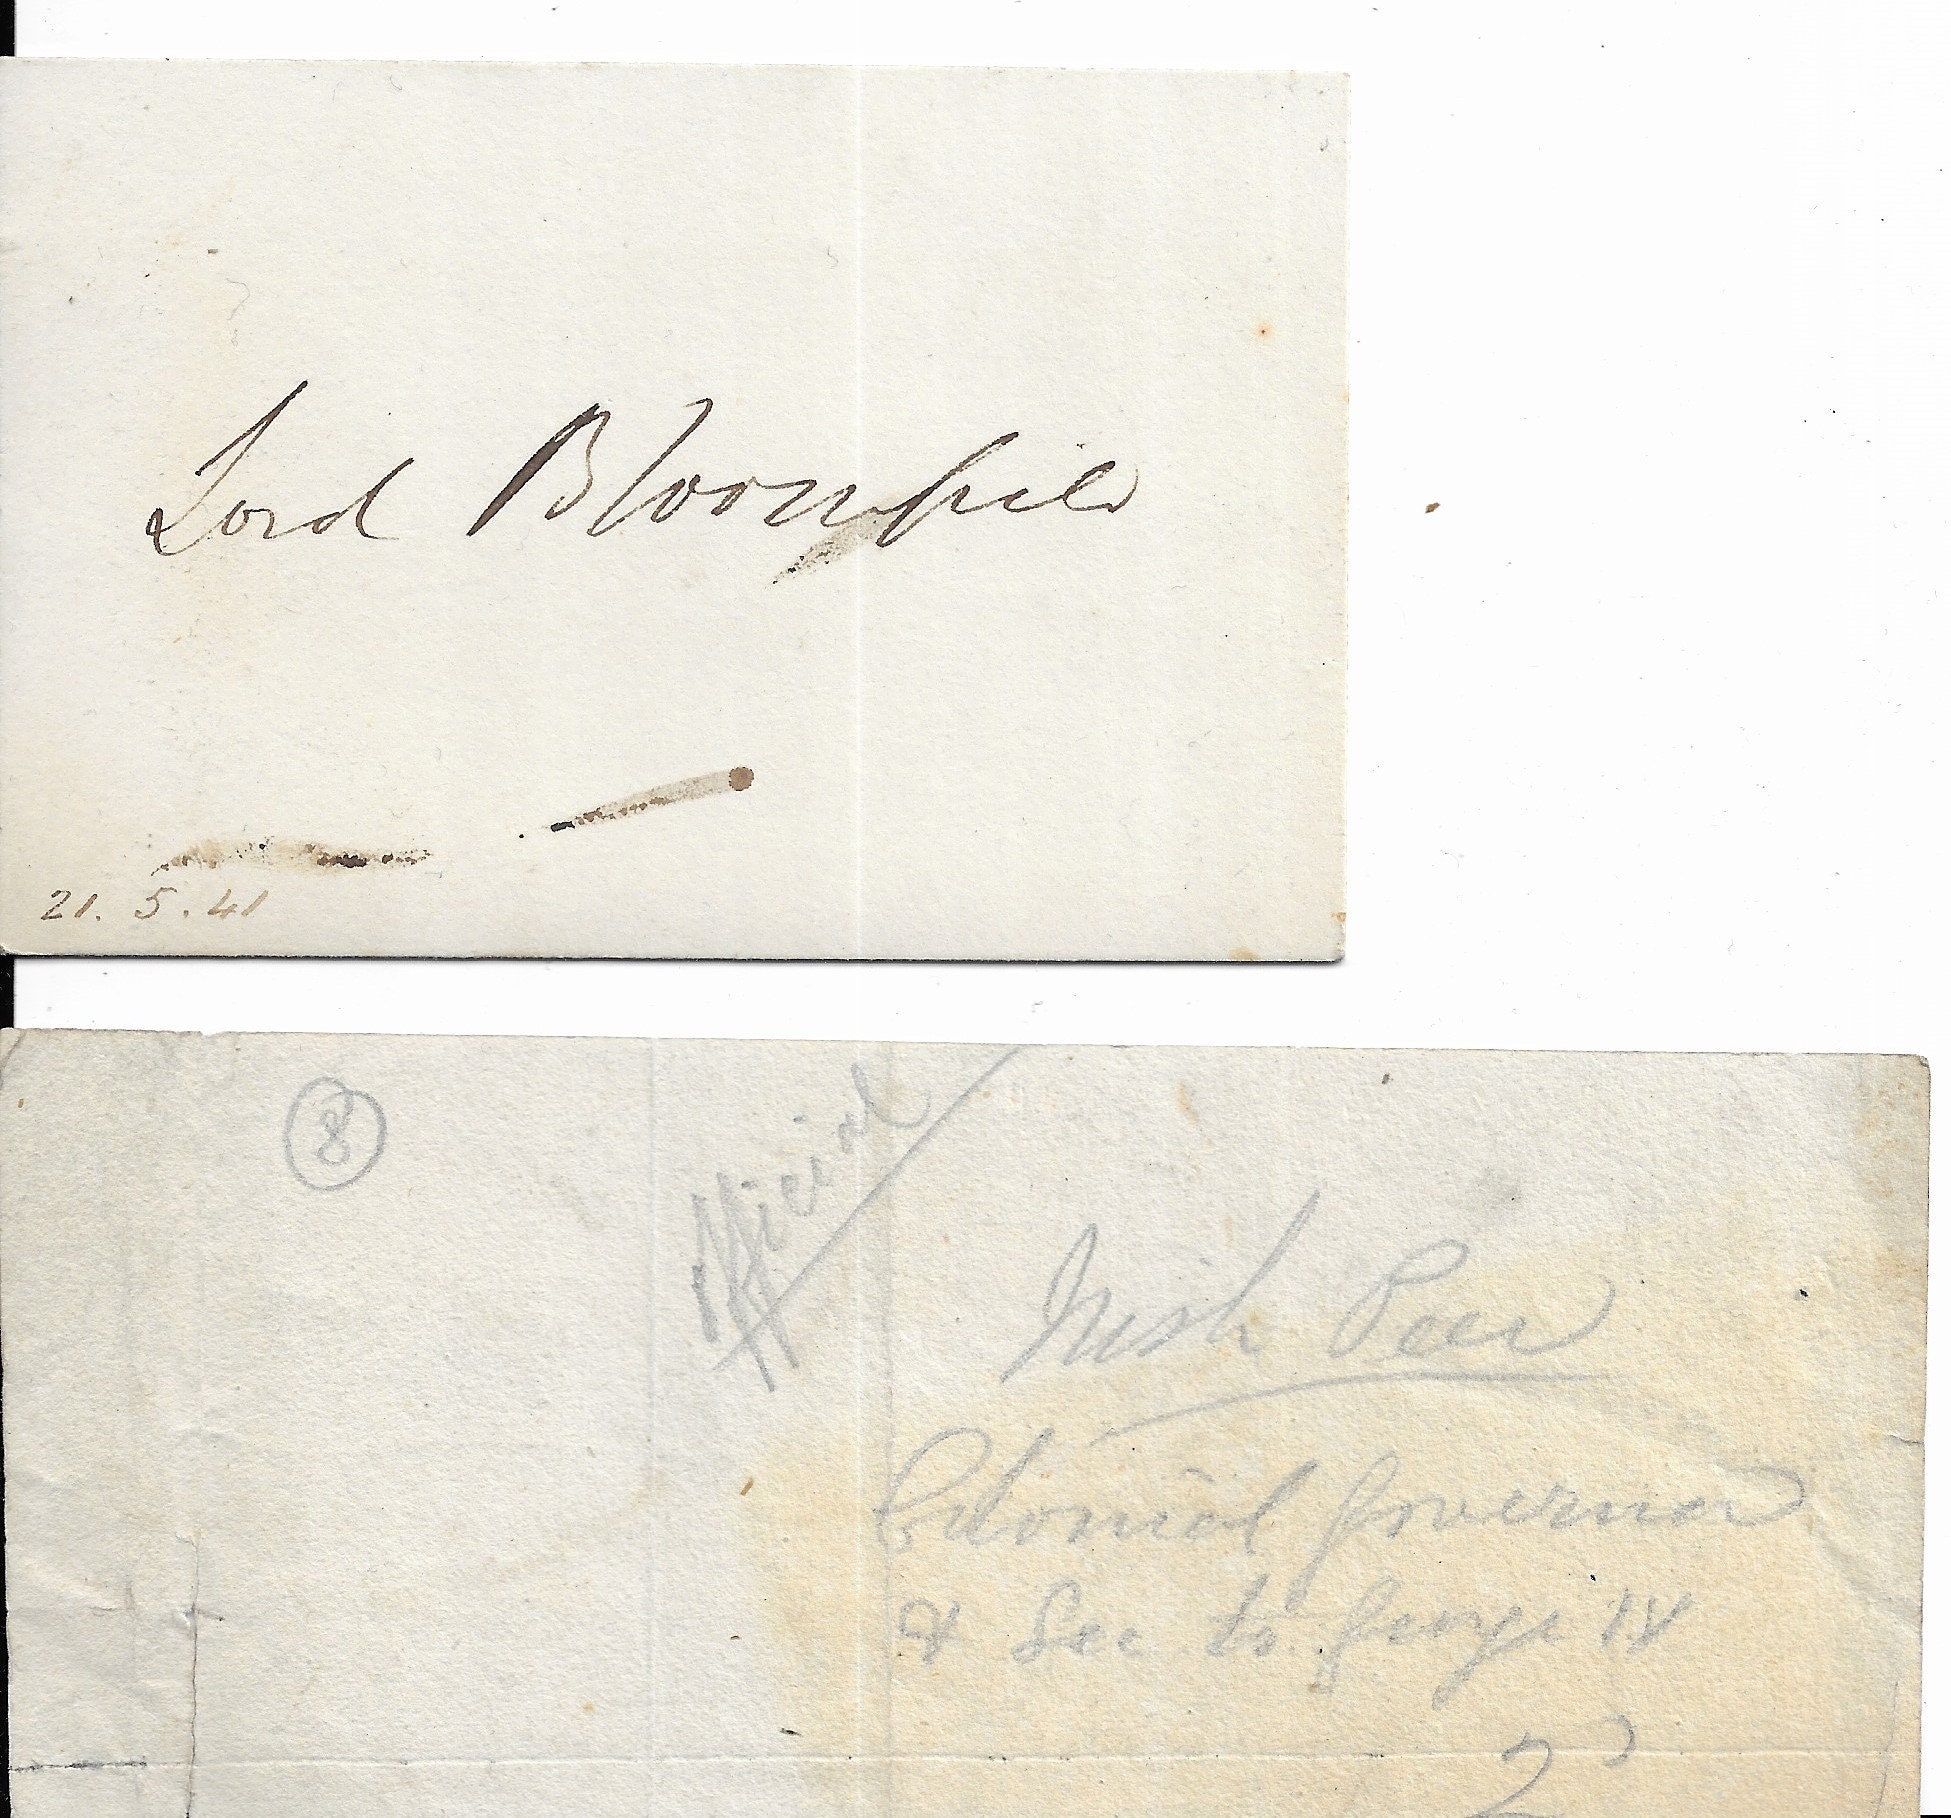 Lord Bloomfield
21. 5. 41
8
Official
Irish Peer
Colonial Governor
& Sec to George IV
2